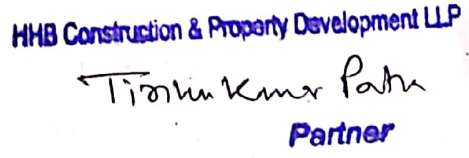 HHB Construction & Property Development LLP
Kumar Patra
Partner